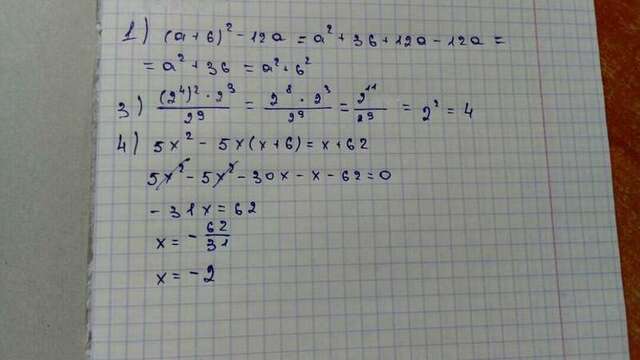 1) (a+6)² - 12a = a² + 36 + 12a - 12a =
= a² + 36 = a² + 6²
3) (2⁴)² · 2³ / 2⁹ = 2⁸ · 2³ / 2⁹ = 2¹¹ / 2⁹ = 2² = 4
4) 5x² - 5x(x+6) = x + 62
5x² - 5x² - 30x - x - 62 = 0
- 31x = 62
x = - 62/31
x = - 2